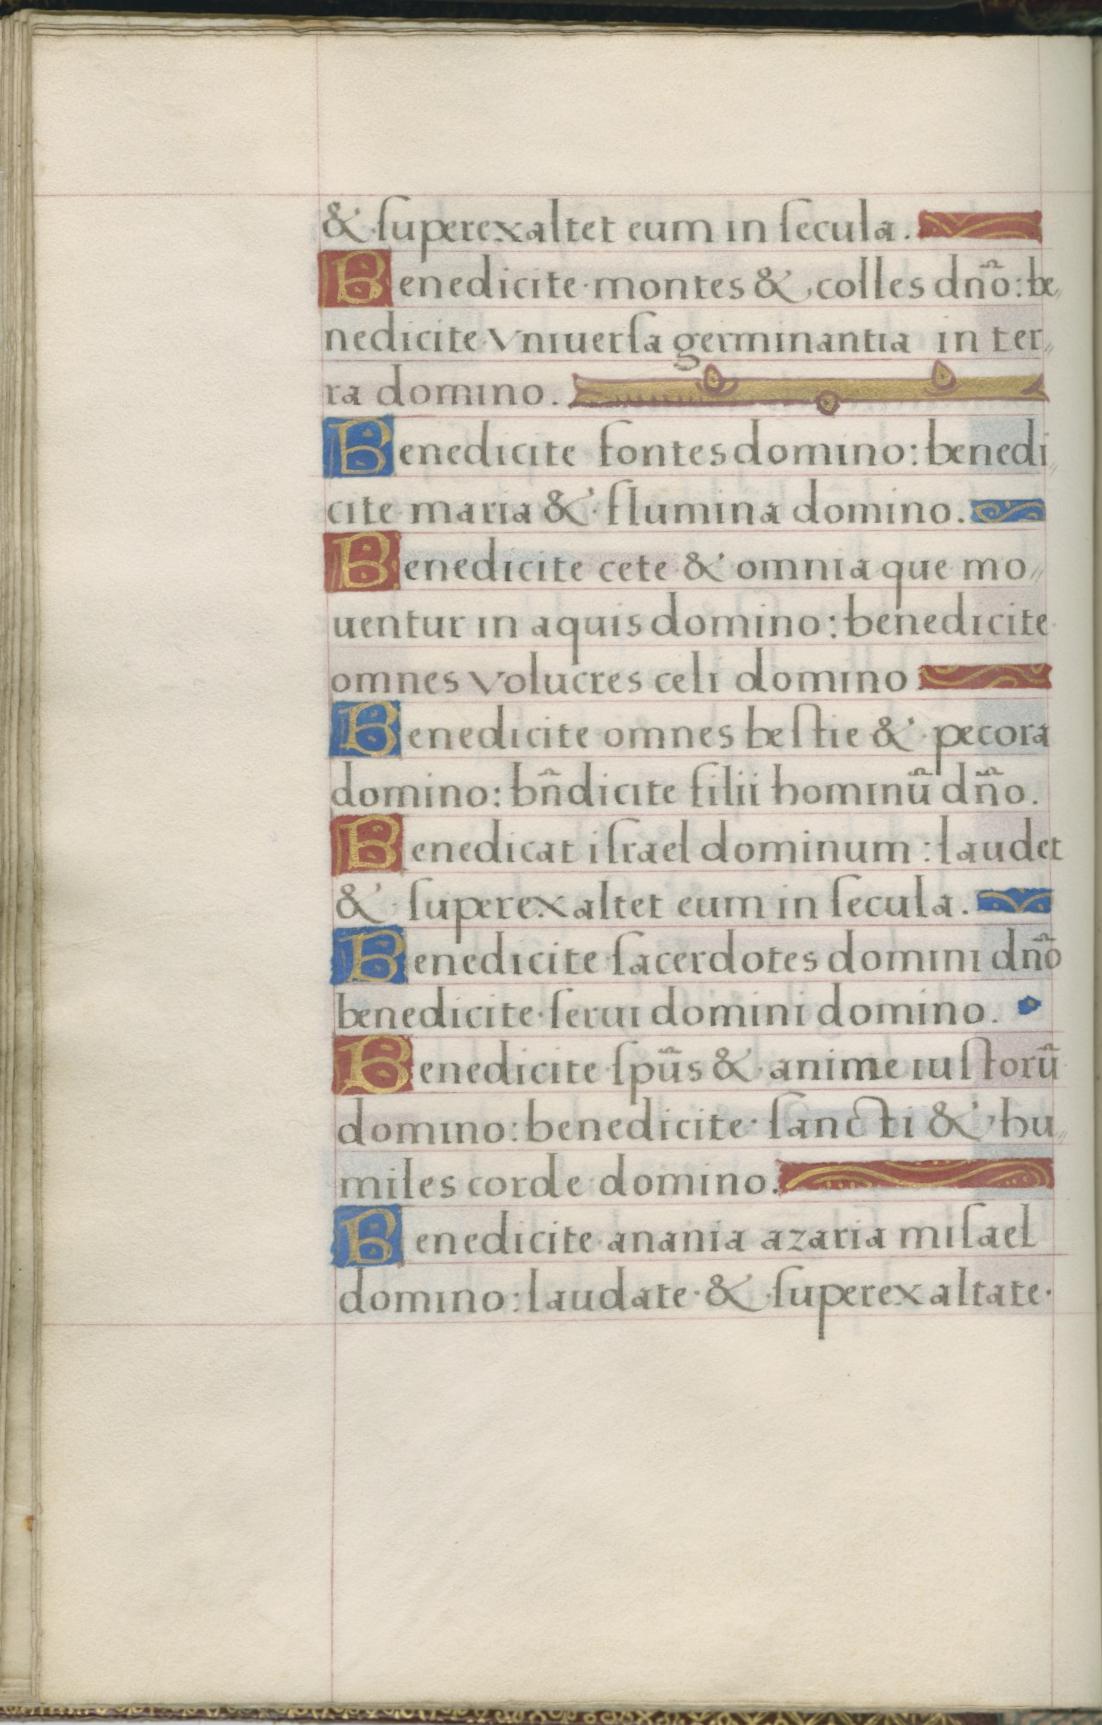 & ſuperexaltet eum in ſecula.
Benedicite montes & colles dn̄o: be„
nedicite vniuerſa germinantia in ter„
ra domino.
Benedicite fontes domino: benedi„
cite maria & flumina domino.
Benedicite cete & omnia que mo„
uentur in aquis domino: benedicite
omnes volucres celi domino.
Benedicite omnes beſtie & pecora
domino: bn̄dicite filii hominū dn̄o.
Benedicat iſrael dominum: laudet
& ſuperexaltet eum in ſecula.
Benedicite ſacerdotes domini dn̄o
benedicite ſerui domini domino.
Benedicite ſpūs & anime iuſtorū
domino: benedicite ſancti & hu„
miles corde domino.
Benedicite anania azaria miſael
domino: laudate & ſuperexaltate.